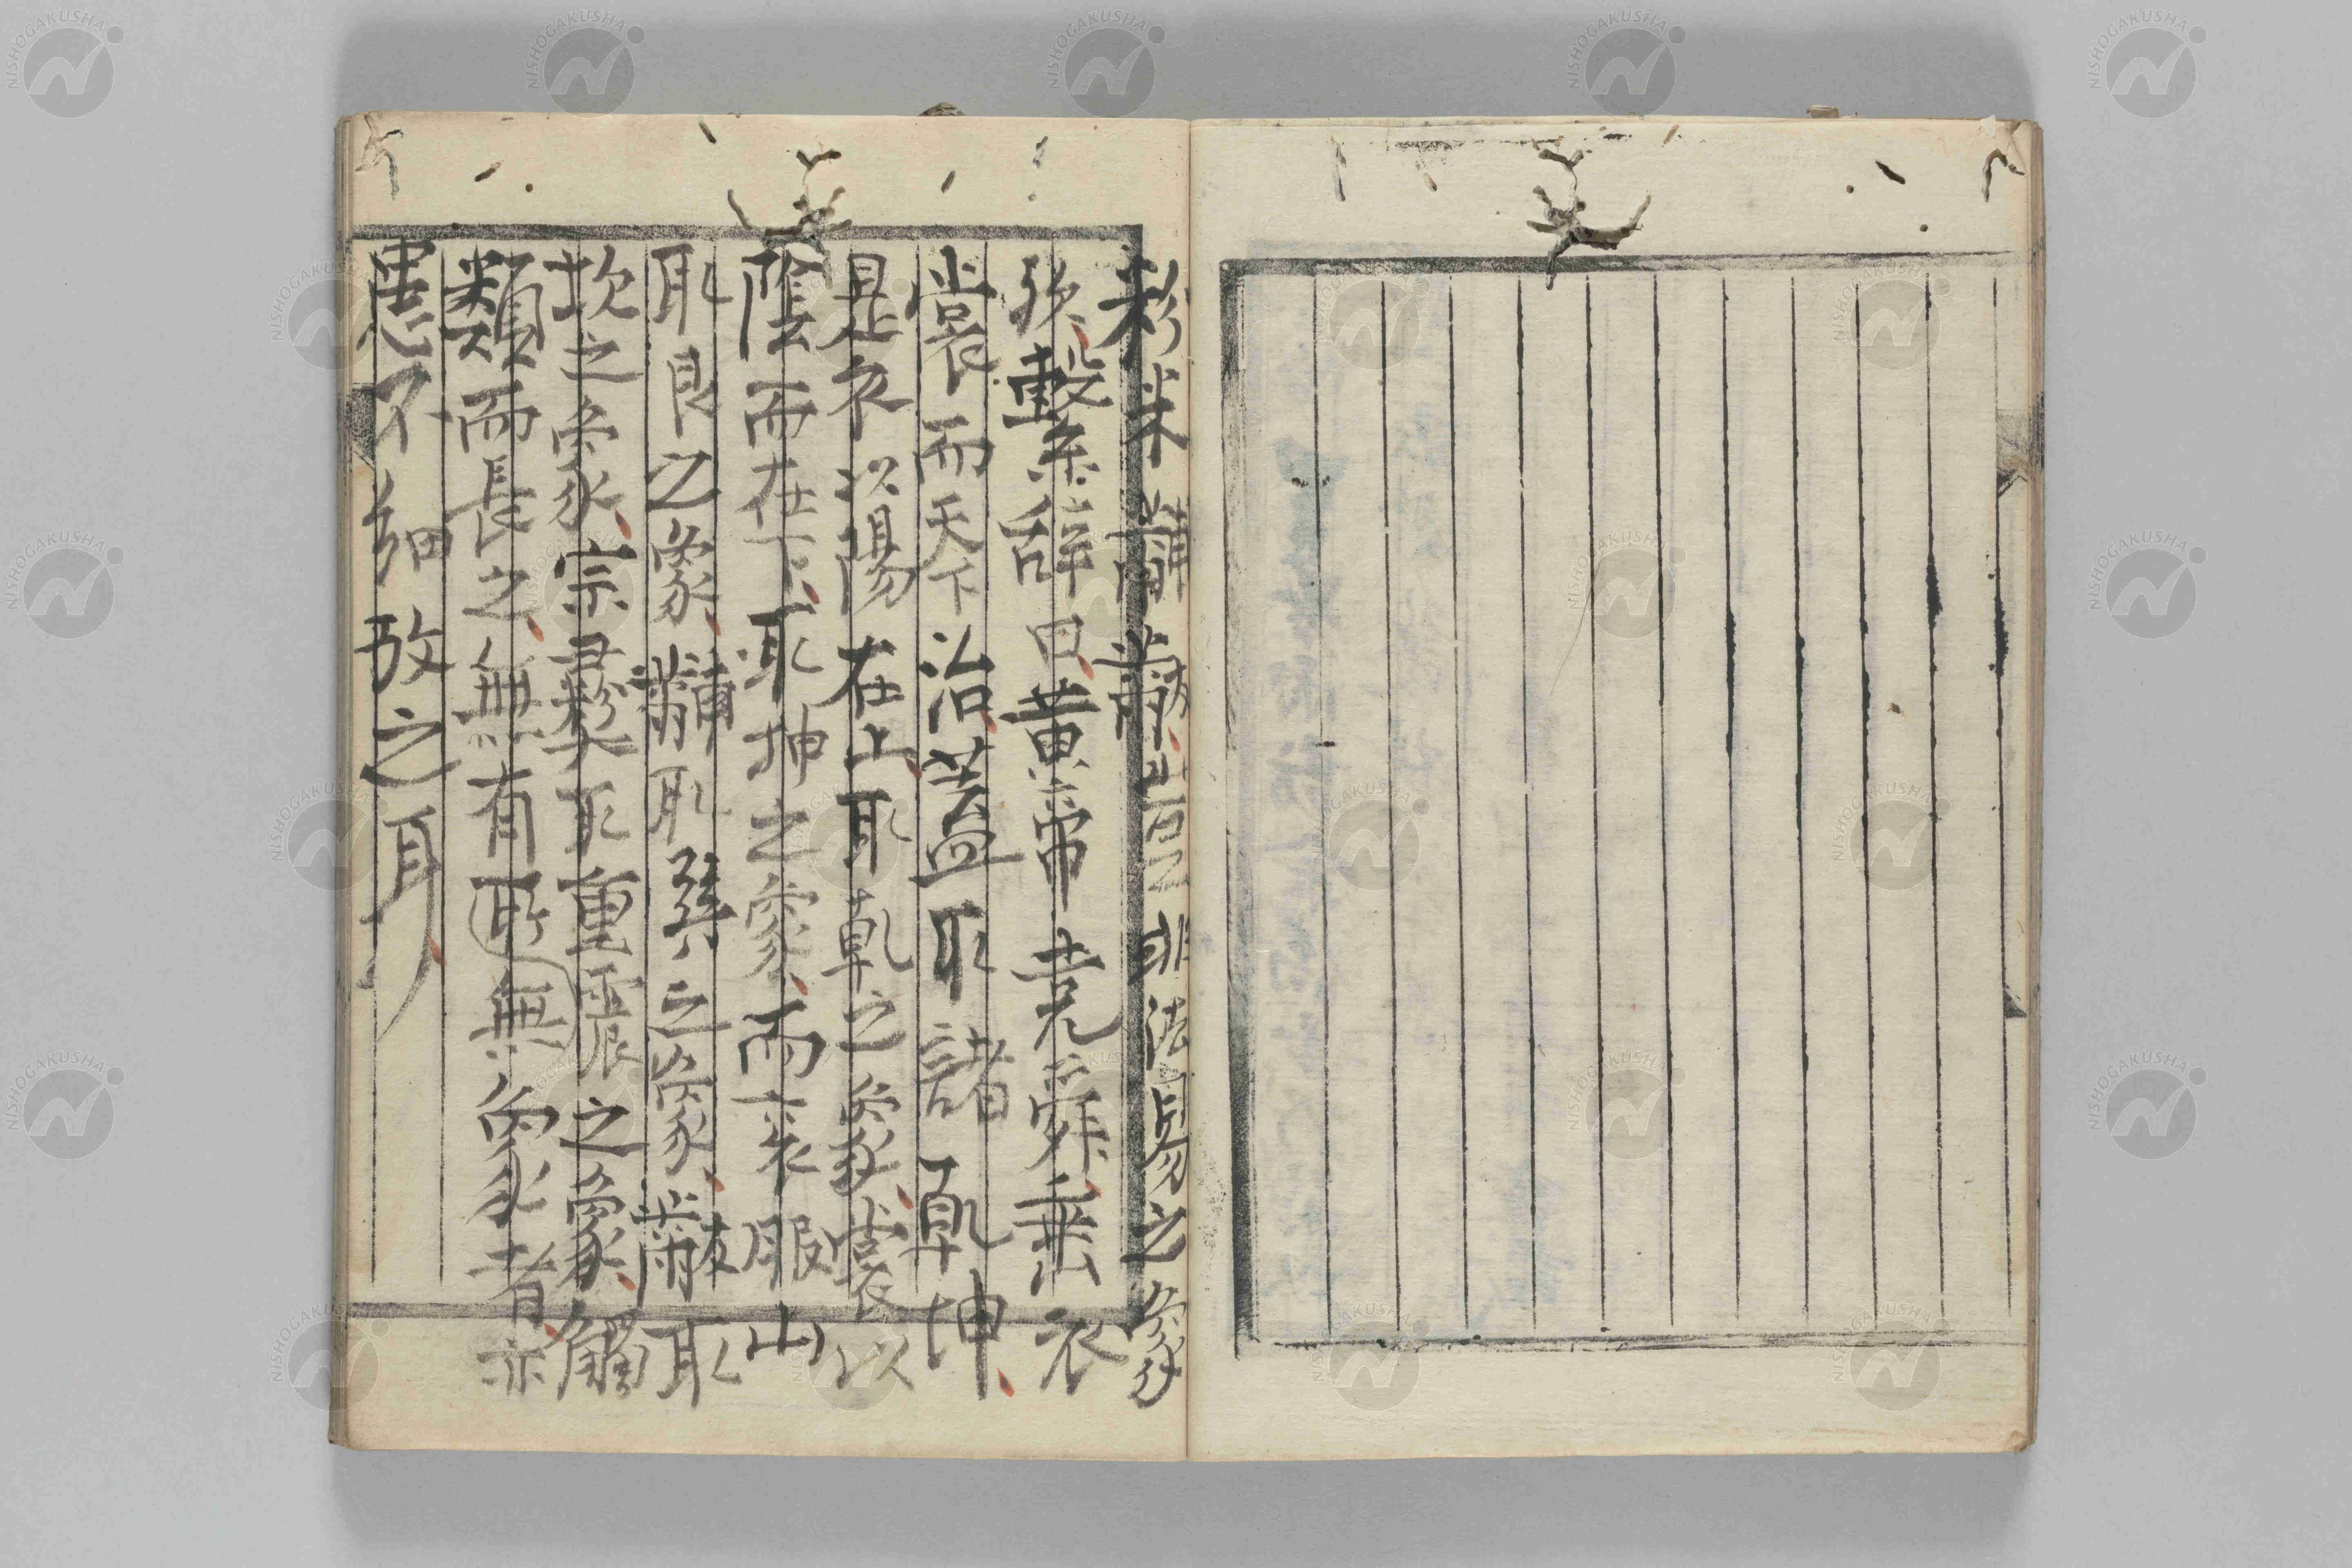 粉米黼黻皆豈非法易之象
歟繫辭曰黃帝堯舜垂衣
裳而天下治蓋取諸乾坤
是衣以陽在上取乾之象裳以
陰而在下取坤之象而衣服山
取艮之象黼取巽之象黻取
坎之象宗彝取重震之象觸
類而長之無有取無象者亦
患不細攷之耳
NISHOGAKUSHA